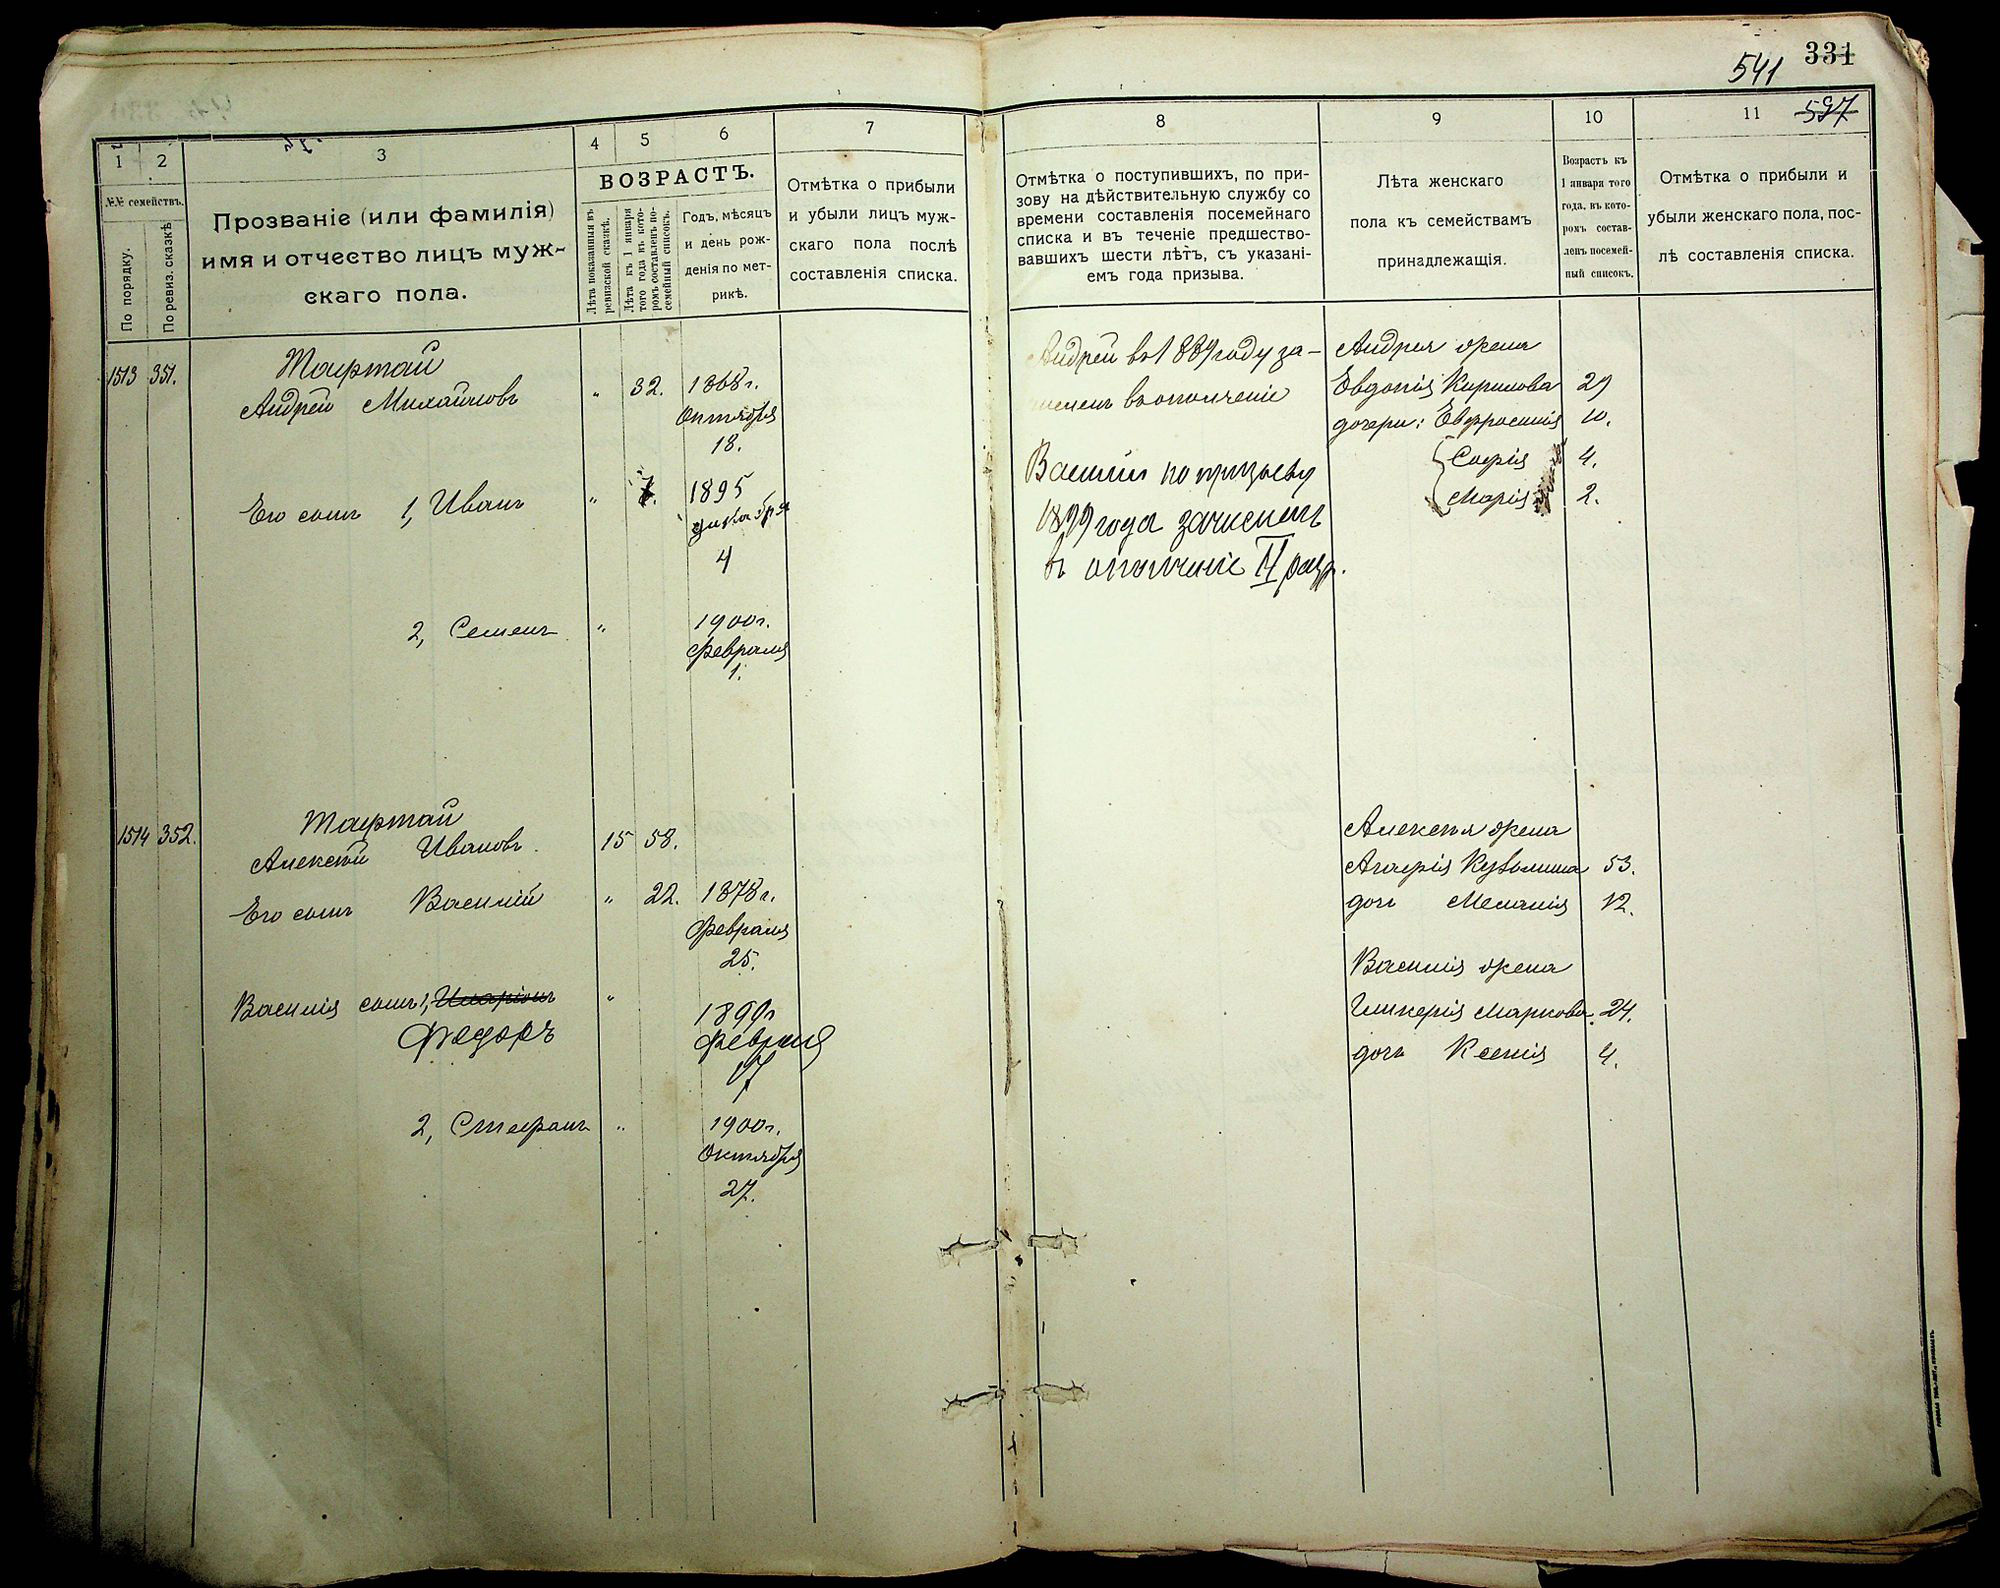 331
541
597
1
2
3
4
5
6
7
8
9
10
11
№№ семействъ.
По порядку.
По ревиз. сказкѣ
Прозваніе (или фамилія)
имя и отчество лицъ муж-
скаго пола.
ВОЗРАСТЪ.
Лѣта показанныя въ
ревизской сказкѣ.
Лѣта къ 1 января
того года въ кото-
ромъ составленъ по-
семейный списокъ.
Годъ, мѣсяцъ
и день рож-
денія по мет-
рикѣ.
Отмѣтка о прибыли
и убыли лицъ муж-
скаго пола послѣ
составленія списка.
Отмѣтка о поступившихъ, по при-
зову на дѣйствительную службу со
времени составленія посемейнаго
списка и въ теченіе предшество-
вавшихъ шести лѣтъ, съ указані-
емъ года призыва.
Лѣта женскаго
пола къ семействамъ
принадлежащія.
Возрастъ къ
1 января того
года, въ кото-
ромъ состав-
ленъ посемей-
ный списокъ.
Отмѣтка о прибыли и
убыли женскаго пола, пос-
лѣ составленія списка.
1513 351. Тафтай
Андрей Михайловъ " 32. 1868 г.
Октября
18.
Его сынъ 1, Иванъ " 1895
декабря
4
2, Семенъ " 1900 г.
февраля
1.
Андрей въ 1889 году за-
численъ въ ополченіе
Василій по призыву
1899 года зачисленъ
въ ополченіе II разр.
Андрея жена
Евдокія Кирилова 29
дочери: Евфросинія 10.
Софія 4.
Марія 2.
1514 352. Тафтай
Алексѣй Ивановъ 15 58.
Его сынъ Василій " 22. 1878 г.
Февраля
25.
Василія сынъ 1, Иларіонъ "
Федоръ 1899 г
февраля
17
2, Стефанъ " 1900 г.
Октября
27.
Алексѣя жена
Агафія Кузьмина 53.
дочь Меланія 12.
Василія жена
Гликерія Маркова 24.
дочь Ксенія 4.